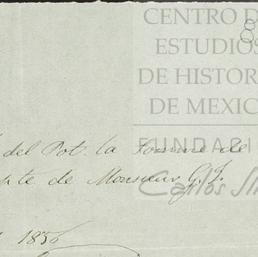 CENTRO D
ESTUDIOS
DE HISTOR
DE MEXIC
FUNDACI
Carlos Sli
del Pot. la Somme de
pte de Monsieur G. J.
1856